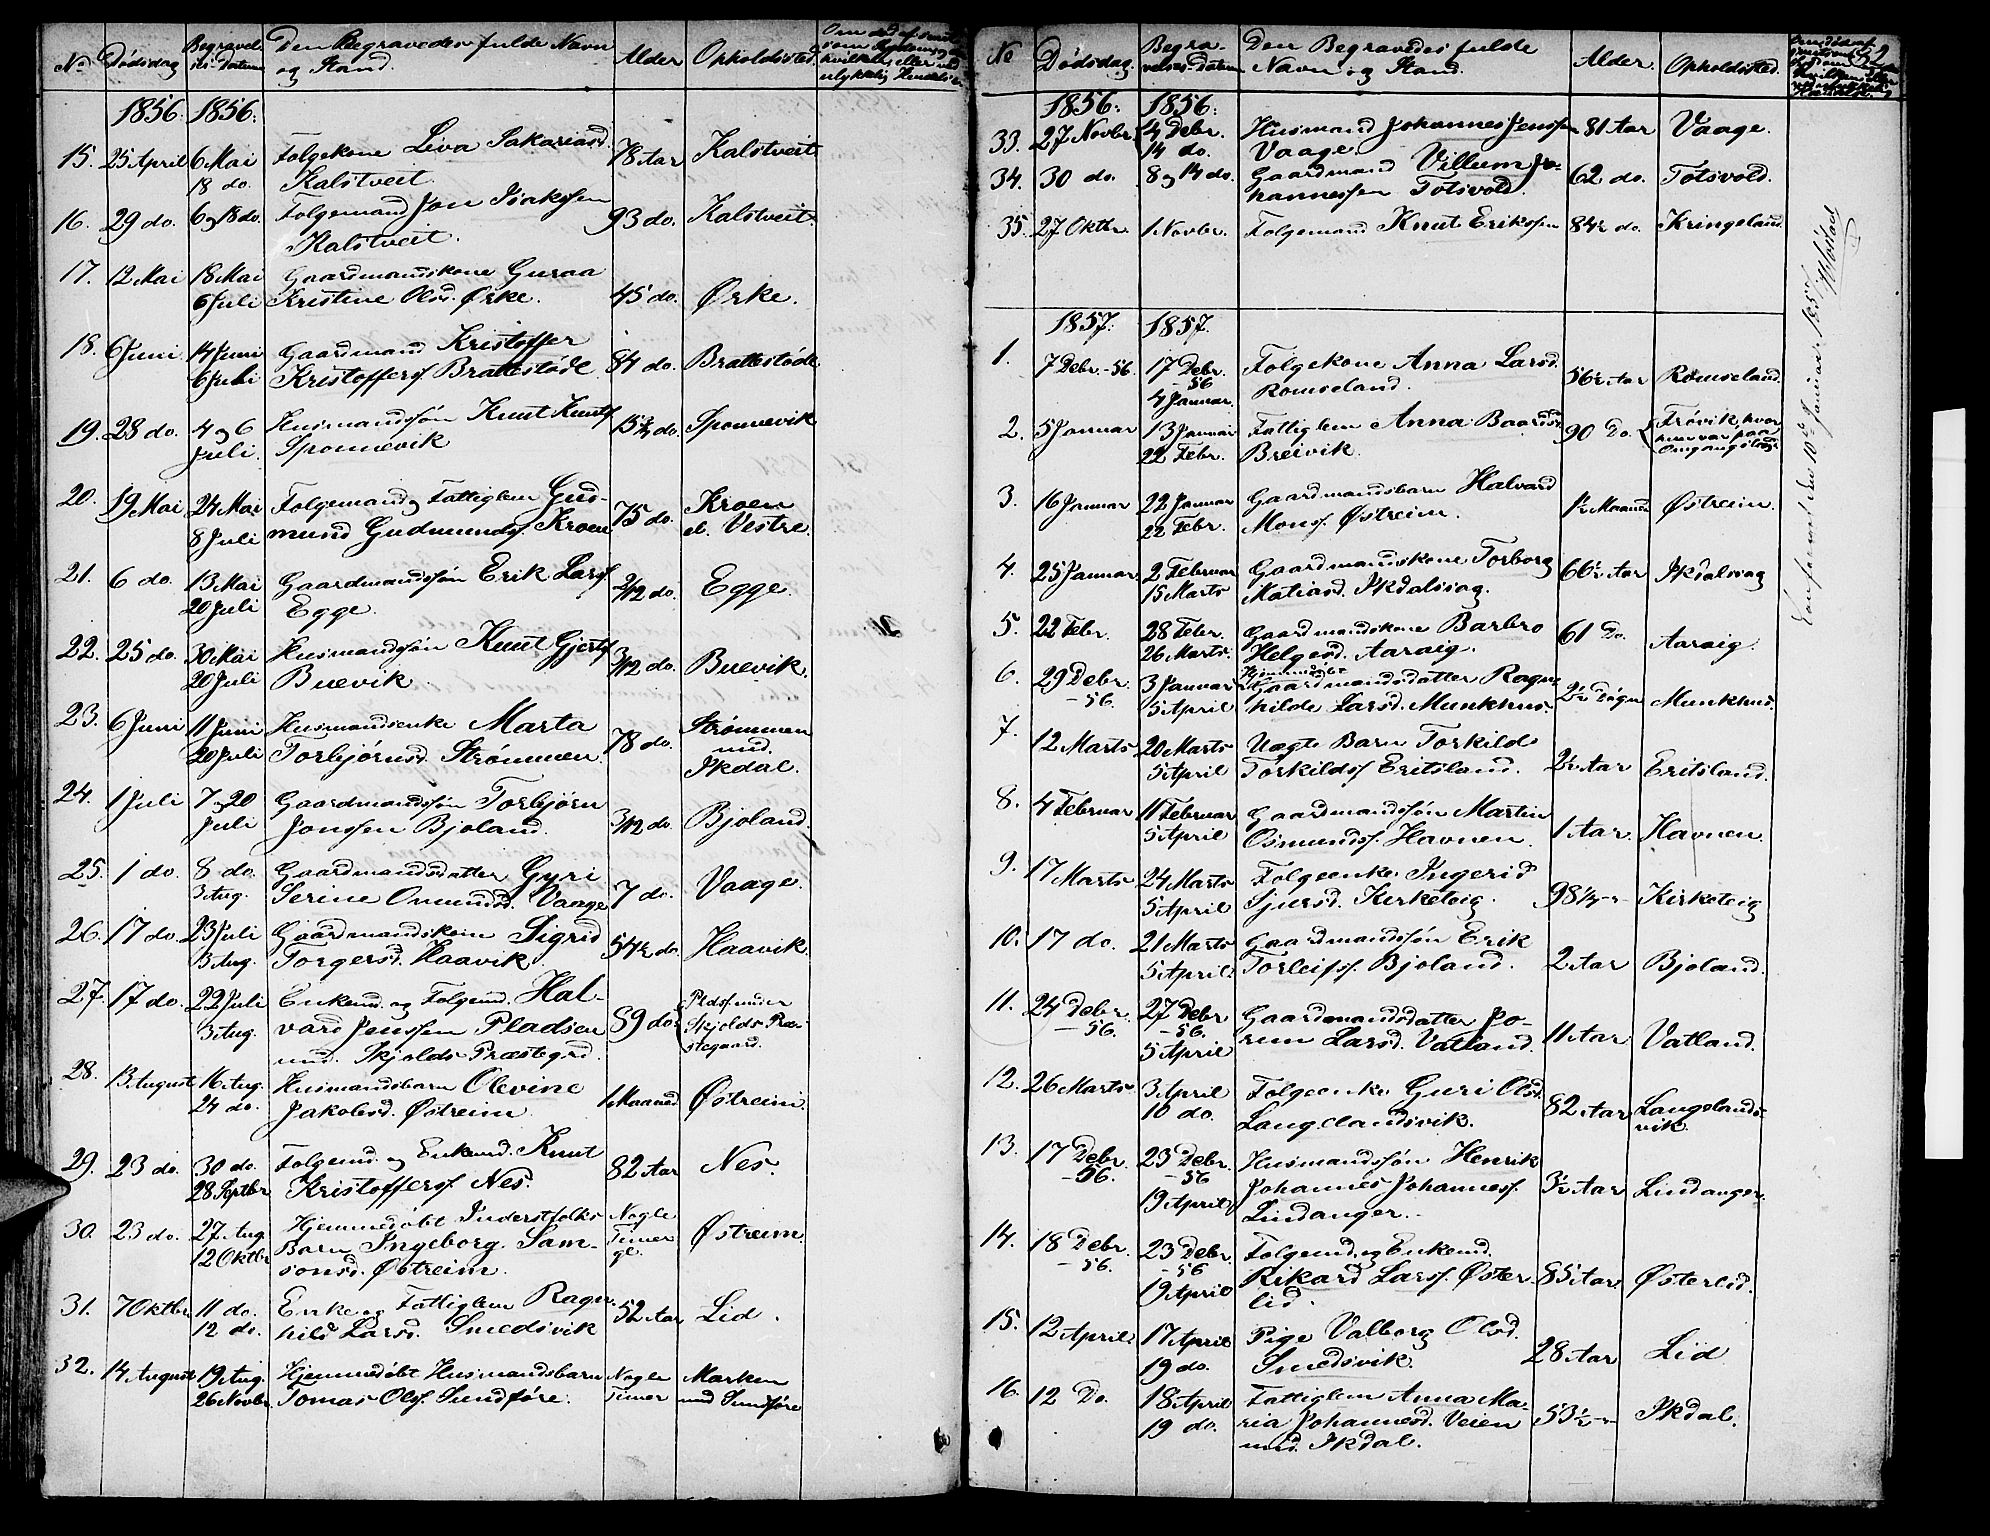 No Dødsdag Begravel- Den Begravedes fulde Navn Alder Opholdssted.
ses Datum og Stand.
1856. 1856.
15. 25 April 6 Mai Folgekone Liva Sakariasd. 78 Aar Kalstveit
18 do. Kalstveit.
16. 29 do. 6 og 18 do. Folgemand Jon Isaksen 93 do. Kalstveit.
Kalstveit.
17. 12 Mai 18 Mai Gaardmandskone Guraa
6 Juli Kristine Olsd. Ørke. 45 do. Ørke.
18. 6 Juni 14 Juni Gaardmand Kristoffer
6 Juli Kristoffers. Brattestøde 84 do. Brattestøde
19. 28 do. 4 og 6 Husmandssøn Knut Knuts. 15 3/4 do. Sponnevik
Juli. Sponnevik
20. 19 Mai 24 Mai Folgemand og Fattiglem Gud- 75 do. Kroen
8 Juli mund Gudmunds. Kroen el. Vestre.
21. 6 do. 13 Mai Gaardmandssøn Erik Lars. 2/12 do. Egge.
20 Juli Egge.
22. 25 do. 30 Mai Husmandssøn Knut Gjerts. 3/12 do. Buevik.
20 Juli Buevik.
23. 6 Juni 11 Juni Husmandsenke Marta 78 do. Strømmen
20 Juli Torbjørnsd. Strømmen und.
Skdal.
24. 1 Juli 7 og 20 Gaardmandssøn Torbjørn
Juli Jonssen Bjoland. 3/12 do. Bjoland.
25. 1 do. 8 do. Gaardmandsdatter Gyri
3 Aug. Serine Omundsd. Vaage 7 do. Vaage.
26. 17 do. 23 Juli Gaardmandskone Sigrid
3 Aug. Torgersd. Haavik. 54 1/2 do. Haavik
27. 17 do. 22 Juli Enkemd. og Folgemd. Hal- Pladsen under
3 Aug. vard Jenssen Pladsen 89 do. Skjolds Præ-
und. Skjolds Præstegrd. stegaard.
28. 13 August 16 Aug. Husmandsbarn Olevine
24 do. Jakobsd. Østreim 1 Maaned Østreim.
29. 23 do. 30 do. Folgemd. og Enkemd. Knut 82 Aar Nes.
28 Septbr Kristoffers. Nes.
30. 23 do. 27 Aug. Hjemmedøbt Inderstfolks Nogle Østreim.
12 Oktbr Barn Ingeborg Sam- Timer
sonsd. Østreim. 
31. 7 Oktbr. 11 do. Enke og Fattiglem Ragn- 52 Aar Lid.
12 do. hild Larsd. Smedsvik
32. 14 August 19 Aug. Hjemmedøbt Husmandsbarn Nogle Marken
26 Novbr. Tomas Ols. Sundføre. Timer und Sundføre
No Dødsdag. Begra- Den Begravedes fulde Alder. Opholdssted.
velses Datum Navn og Stand.
1856. 1856.
33. 27 Novbr. 4 Debr. Husmand Johannes Jenssen 81 Aar Vaage.
14 do. Vaage.
34. 30 do. 8 og 14 do. Gaardmand Villum Jo- 62 do. Totsvold.
hannessen Totsvold.
35. 27 Oktbr. 1 Novbr. Folgemand Knut Erikssen 84 1/2 do. Kringeland
1857. 1857.
1. 7 Debr. - 56. 17 Debr. Folgekone Anna Larsd.
- 56 Romseland. 56 1/2 Aar Romseland.
4 Januar.
2. 5 Januar 13 Januar Fattiglem Anna Baardsd. 90 Do. Frøvik, hvor
22 Febr. Breivik. hun var paa
Omgangslægd.
3. 16 Januar 22 Januar Gaardmandsbarn Halvard 1 1/2 Maaned Østreim.
22 Febr. Mons. Østreim.
4. 25 Januar. 2 Februar Gaardmandskone Torborg 66 1/2 Aar Skdalsvag
15 Marts Matiasd. Skdalsvag.
5. 22 Febr. 28 Febr. Gaardmandskone Barbro 61 Do. Aaraig.
26 Marts. Helgesd. Aaraig.
6. 29 Debr. 3 Januar Hjemmedøbt Gaardmandsdatter Ragn- 2 1/2 Døgn Munkhus.
- 56. 5 April hilde Larsd. Munkhus.
7. 12 Marts 20 Marts Uægte Barn Torkild
5 April Torkilds. Eritsland. 2 1/2 Aar Eritsland.
8. 4 Februar 11 Februar Gaardmandssøn Martin
5 April Osmunds. Havnen. 1 Aar. Havnen.
9. 17 Marts 24 Marts Folgeenke Ingerid
5 April Sjursd. Kirketeig. 98 1/2 - Kirketeig
10. 17 do. 21 Marts Gaardmandssøn Erik
5 April Torleifs. Bjoland. 2 Aar Bjoland.
11. 24 Debr. 27 Debr. Gaardmandsdatter Jo-
- 56. - 56. run Larsd. Vatland. 11 Aar Vatland.
5 April
12. 26 Marts 3 April Folgeenke Guri Olsd. 82 Aar Langelands-
10 do. Langelandsvik. vik.
13. 17 Debr. 23 Debr. Husmandssøn Henrik
- 56. - 56 Johannes Johanness. 3 1/2 Aar Lindanger.
19 April Lindanger.
14. 18 Debr. 23 Debr. Folgemd. og Enkemd.
- 56. - 56 Rikard Lars. Øster- 85 Aar. Østerlid.
19 April lid.
15. 12 April. 17 April Pige Valborg Olsd. 28 Aar Lid
19 do. Smedsvik.
16. 12 Do. 18 April Fattiglem Anna Ma- 53 1/2 - Skdal.
19 do. ria Johannesd. Veien
und. Skdal.
Konfereret den 10de Januar 1858